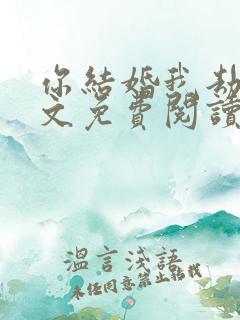 你結婚我劫
文免費閱讀
溫言淺語
未经同意禁止转载